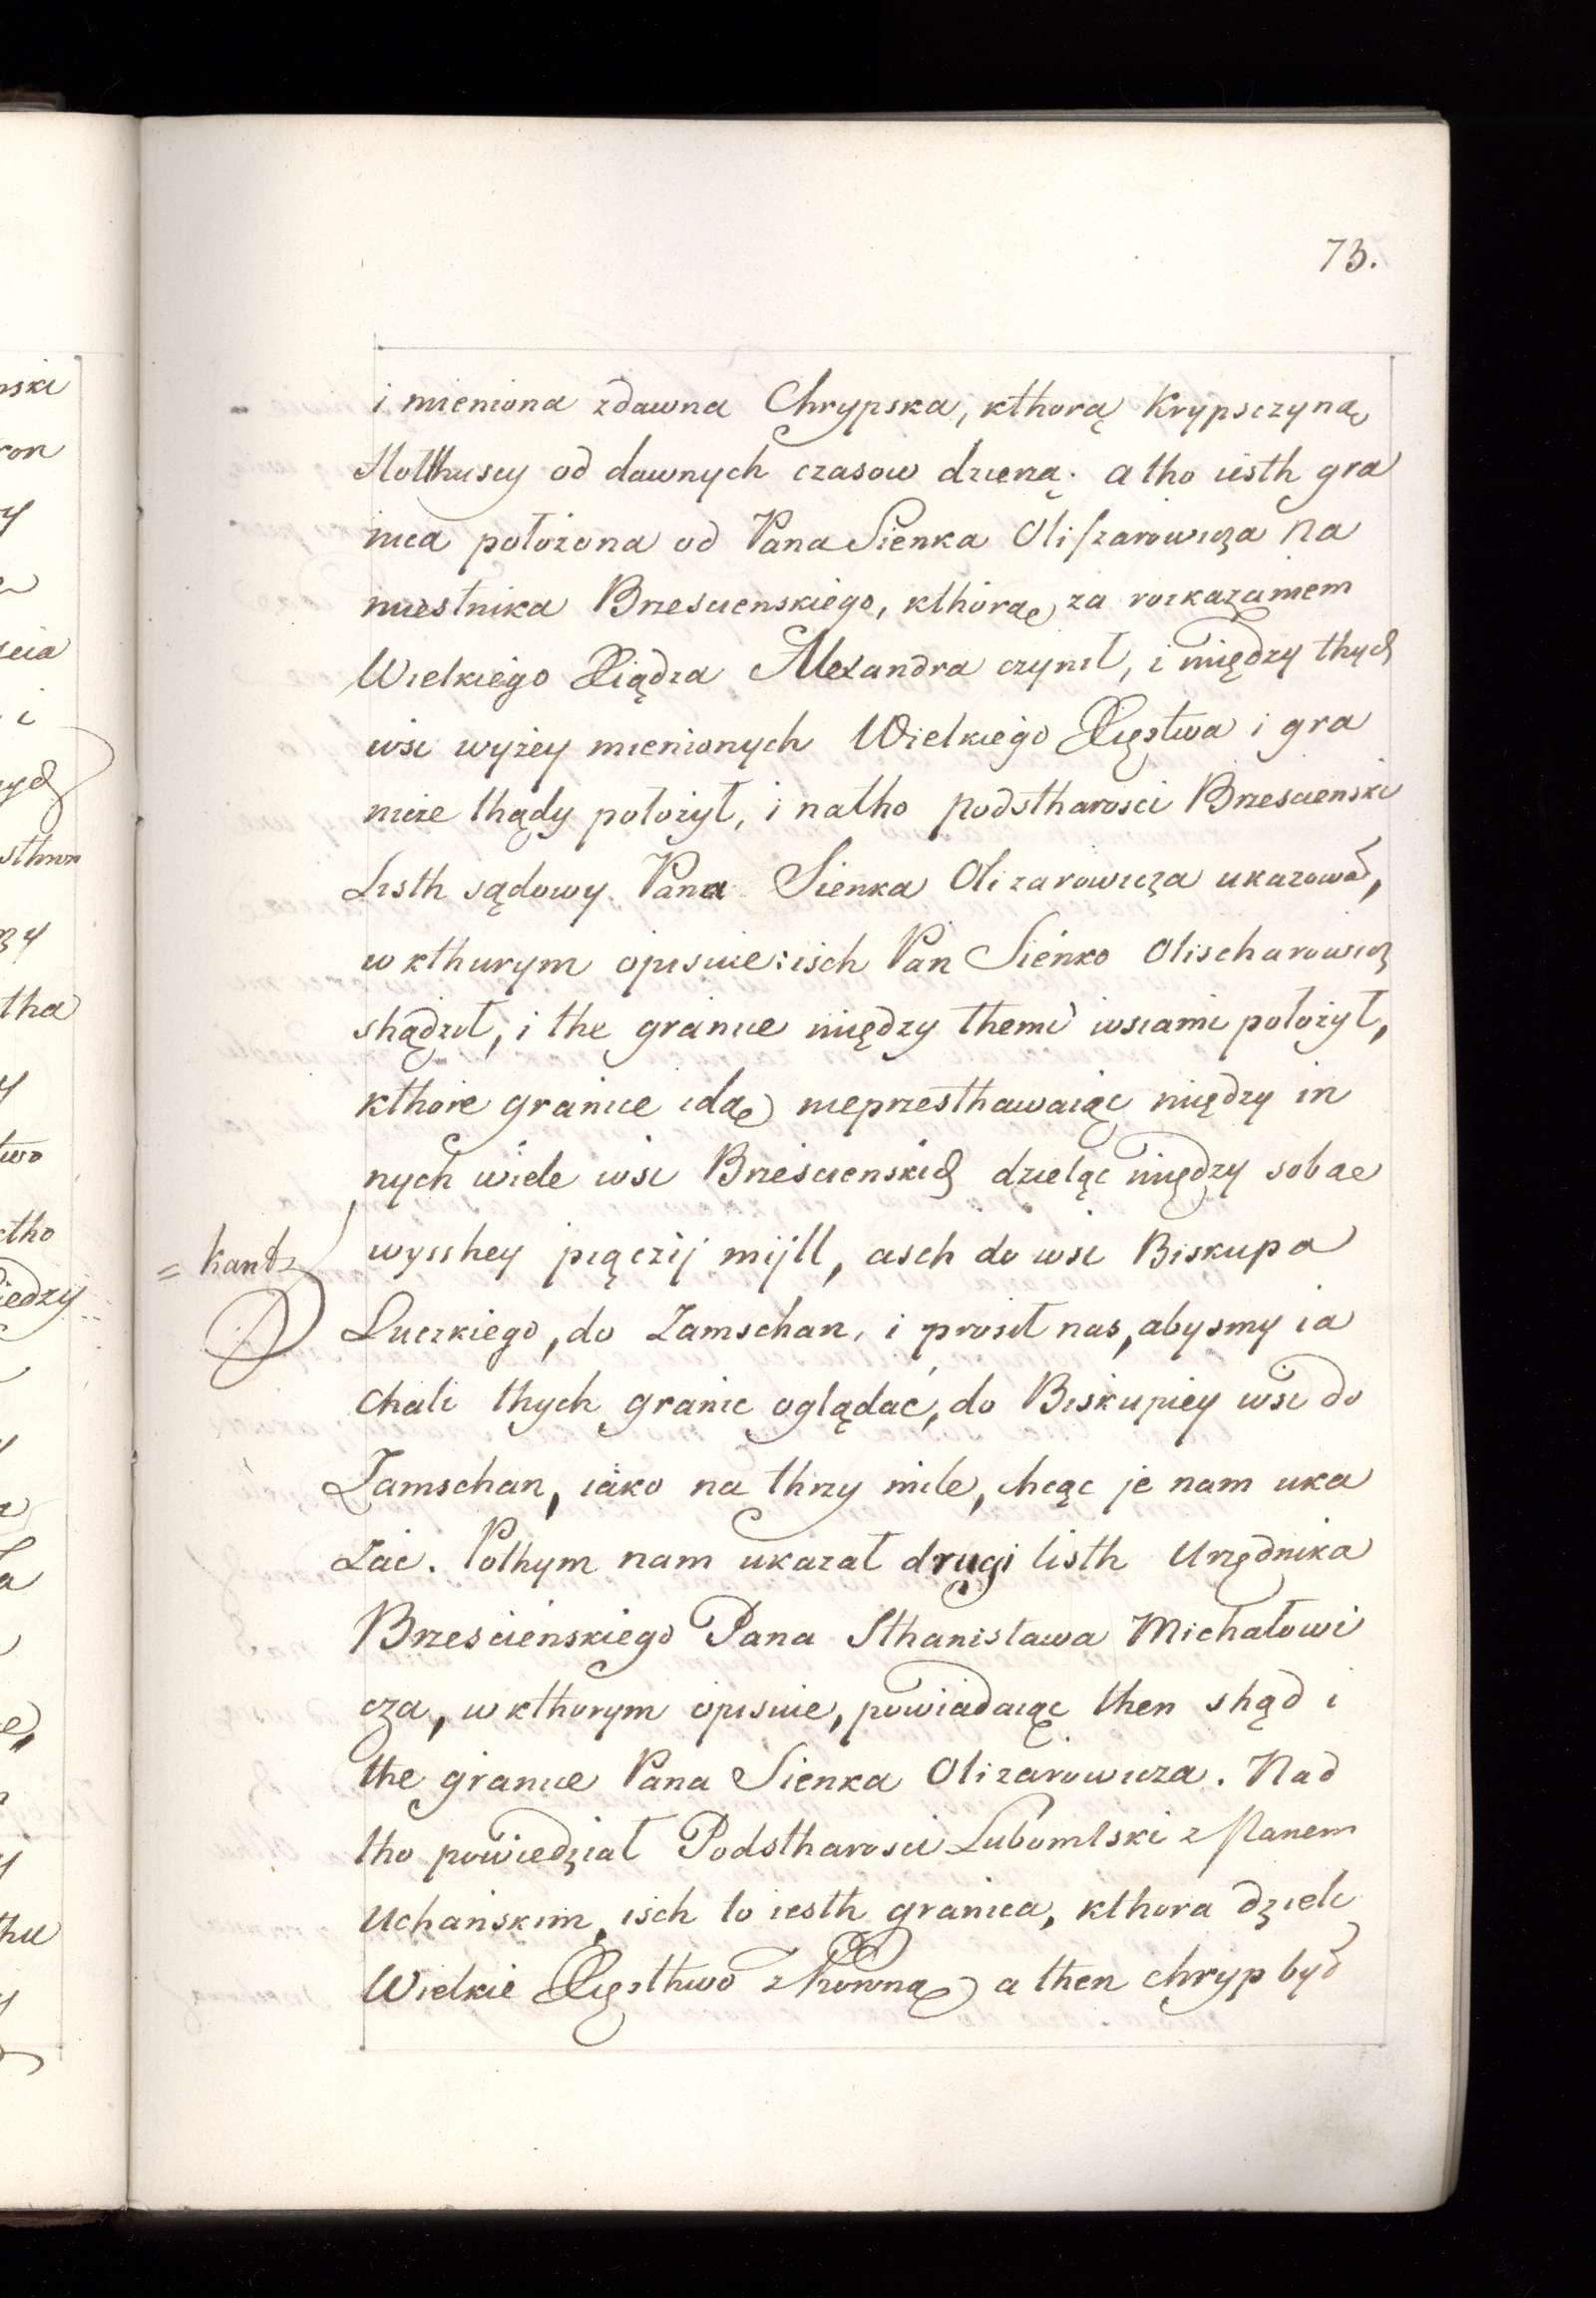 73.
i mieniona zdawna Chrypska, kthorą Krypsczyną
od dawnych czasow dzierzą. a tho iesth gra
nica położona od Pana Sienka Oliszarowicza na
miestnika Brzescienskiego, kthorą za rozkazaniem
Wielkiego Xiądza Alexandra czynił, i między thych
wsi wyżey mienionych Wielkiego Xięstwa i gra
nice thądy położył, i natho podstharosci Brzescienski
Listh sądowy Pana Sienka Olizarowicza ukazował,
w kthurym opisuie: isch Pan Sieńko Olischarowicz
shądził, i the granice między themi wsiami położył,
kthore granice idą nieprzesthawaiąc między in
nych wiele wsi Brzescienskich dzieląc między sobą
wysshey pięczij mijll, asch do wsi Biskupa
= kant
Luczkiego, do Zamschan, i prosił nas, abysmy ia
chali thych granic oglądać, do Biskupiey wsi do
Zamschan, iako na thrzy mile, chcąc je nam uka
zac. Pothym nam ukazał drugi listh Urzędnika
Brzescieńskiego Pana Sthanisława Michałowi
cza, w kthorym opisuie, powiadaiąc then shąd i
the granice Pana Sienka Olizarowicza. Nad
tho powiedział Podstharosci Lubomlski z Panem
Uchańskim, isch to iesth granica, kthora dzieli
Wielkie Xięsthwo z Koroną a then chryp był